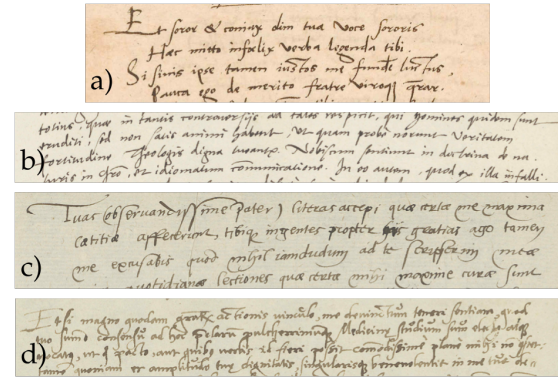 a)
Et soror & coniux dim tua voce sororis
Hæc mitto infœlix verba legenda tibi.
Si sinis ipse tamen iustos me funde luctus,
Pauca ego de merito fratre viroq; querar.
b)
totius, quae in tantis controversijs ad tales respicit, qui homines quidem sunt
eruditi, sed non satis animi habent, ut quam probe norunt veritatem
fortitudine Theologis digna tueantur. Nobiscum sentiunt in doctrina de na
turis in Chro, et idiomatum communicatione. In eo autem, quod ex illa infalli
c)
Tuas (observandissime Pater) literas accepi, quæ certe me maxima
lætitia affecerunt, tibique ingentes propter eas gratias ago tamen
me excusabis quod nihil iamdudum ad te scripserim meæ
quotidianæ lectiones quæ certe mihi maxime curæ sunt
d)
Et si magno quodam gratæ actionis vinculo, me devinctum teneri sentiam, quod
tuo summo consensu ad hoc præclarum pulcherrimumq; Medicinæ studium sum
quo pacto, aut quibus verbis id fieri possit commodissime plane mihi no
tamen quoniam et amplitudo tuæ dignitatis, singularisq; benevolentia in me tuæ